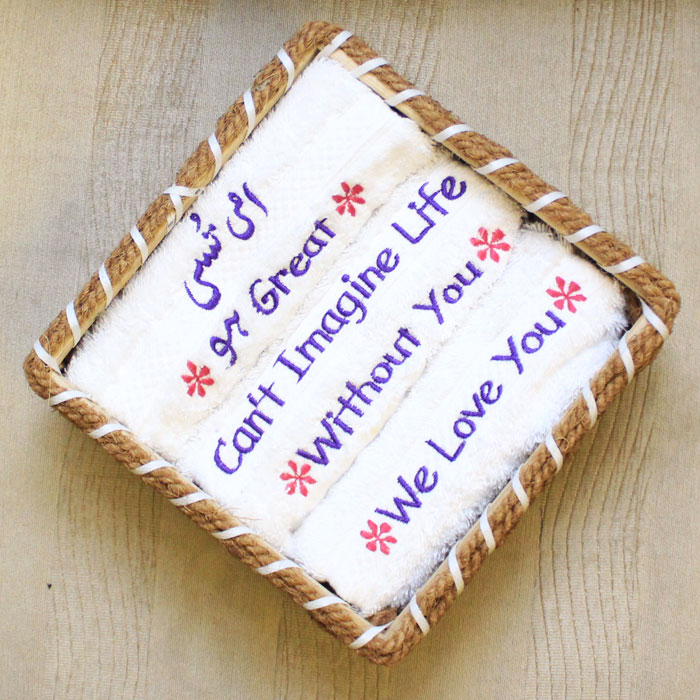 امی تُسی
Great ہو
Can't Imagine Life
Without You
We Love You